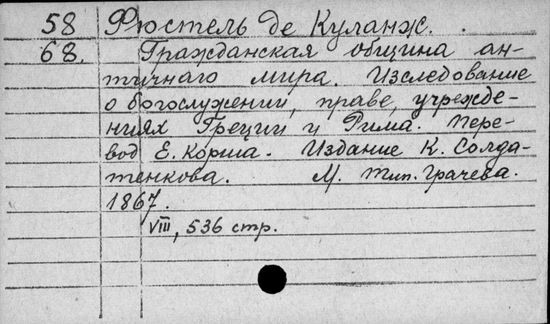 58 Фюстель де Куланж.
68. Гражданская община ан-
тичнаго мира. Изследование
о богослужении, праве, учрежде-
ниях Греции и Рима. Пере-
вод Е. Корша. Издание К. Солда-
тенкова. М. Тип. Грачева.
1867.
VIII, 536 стр.